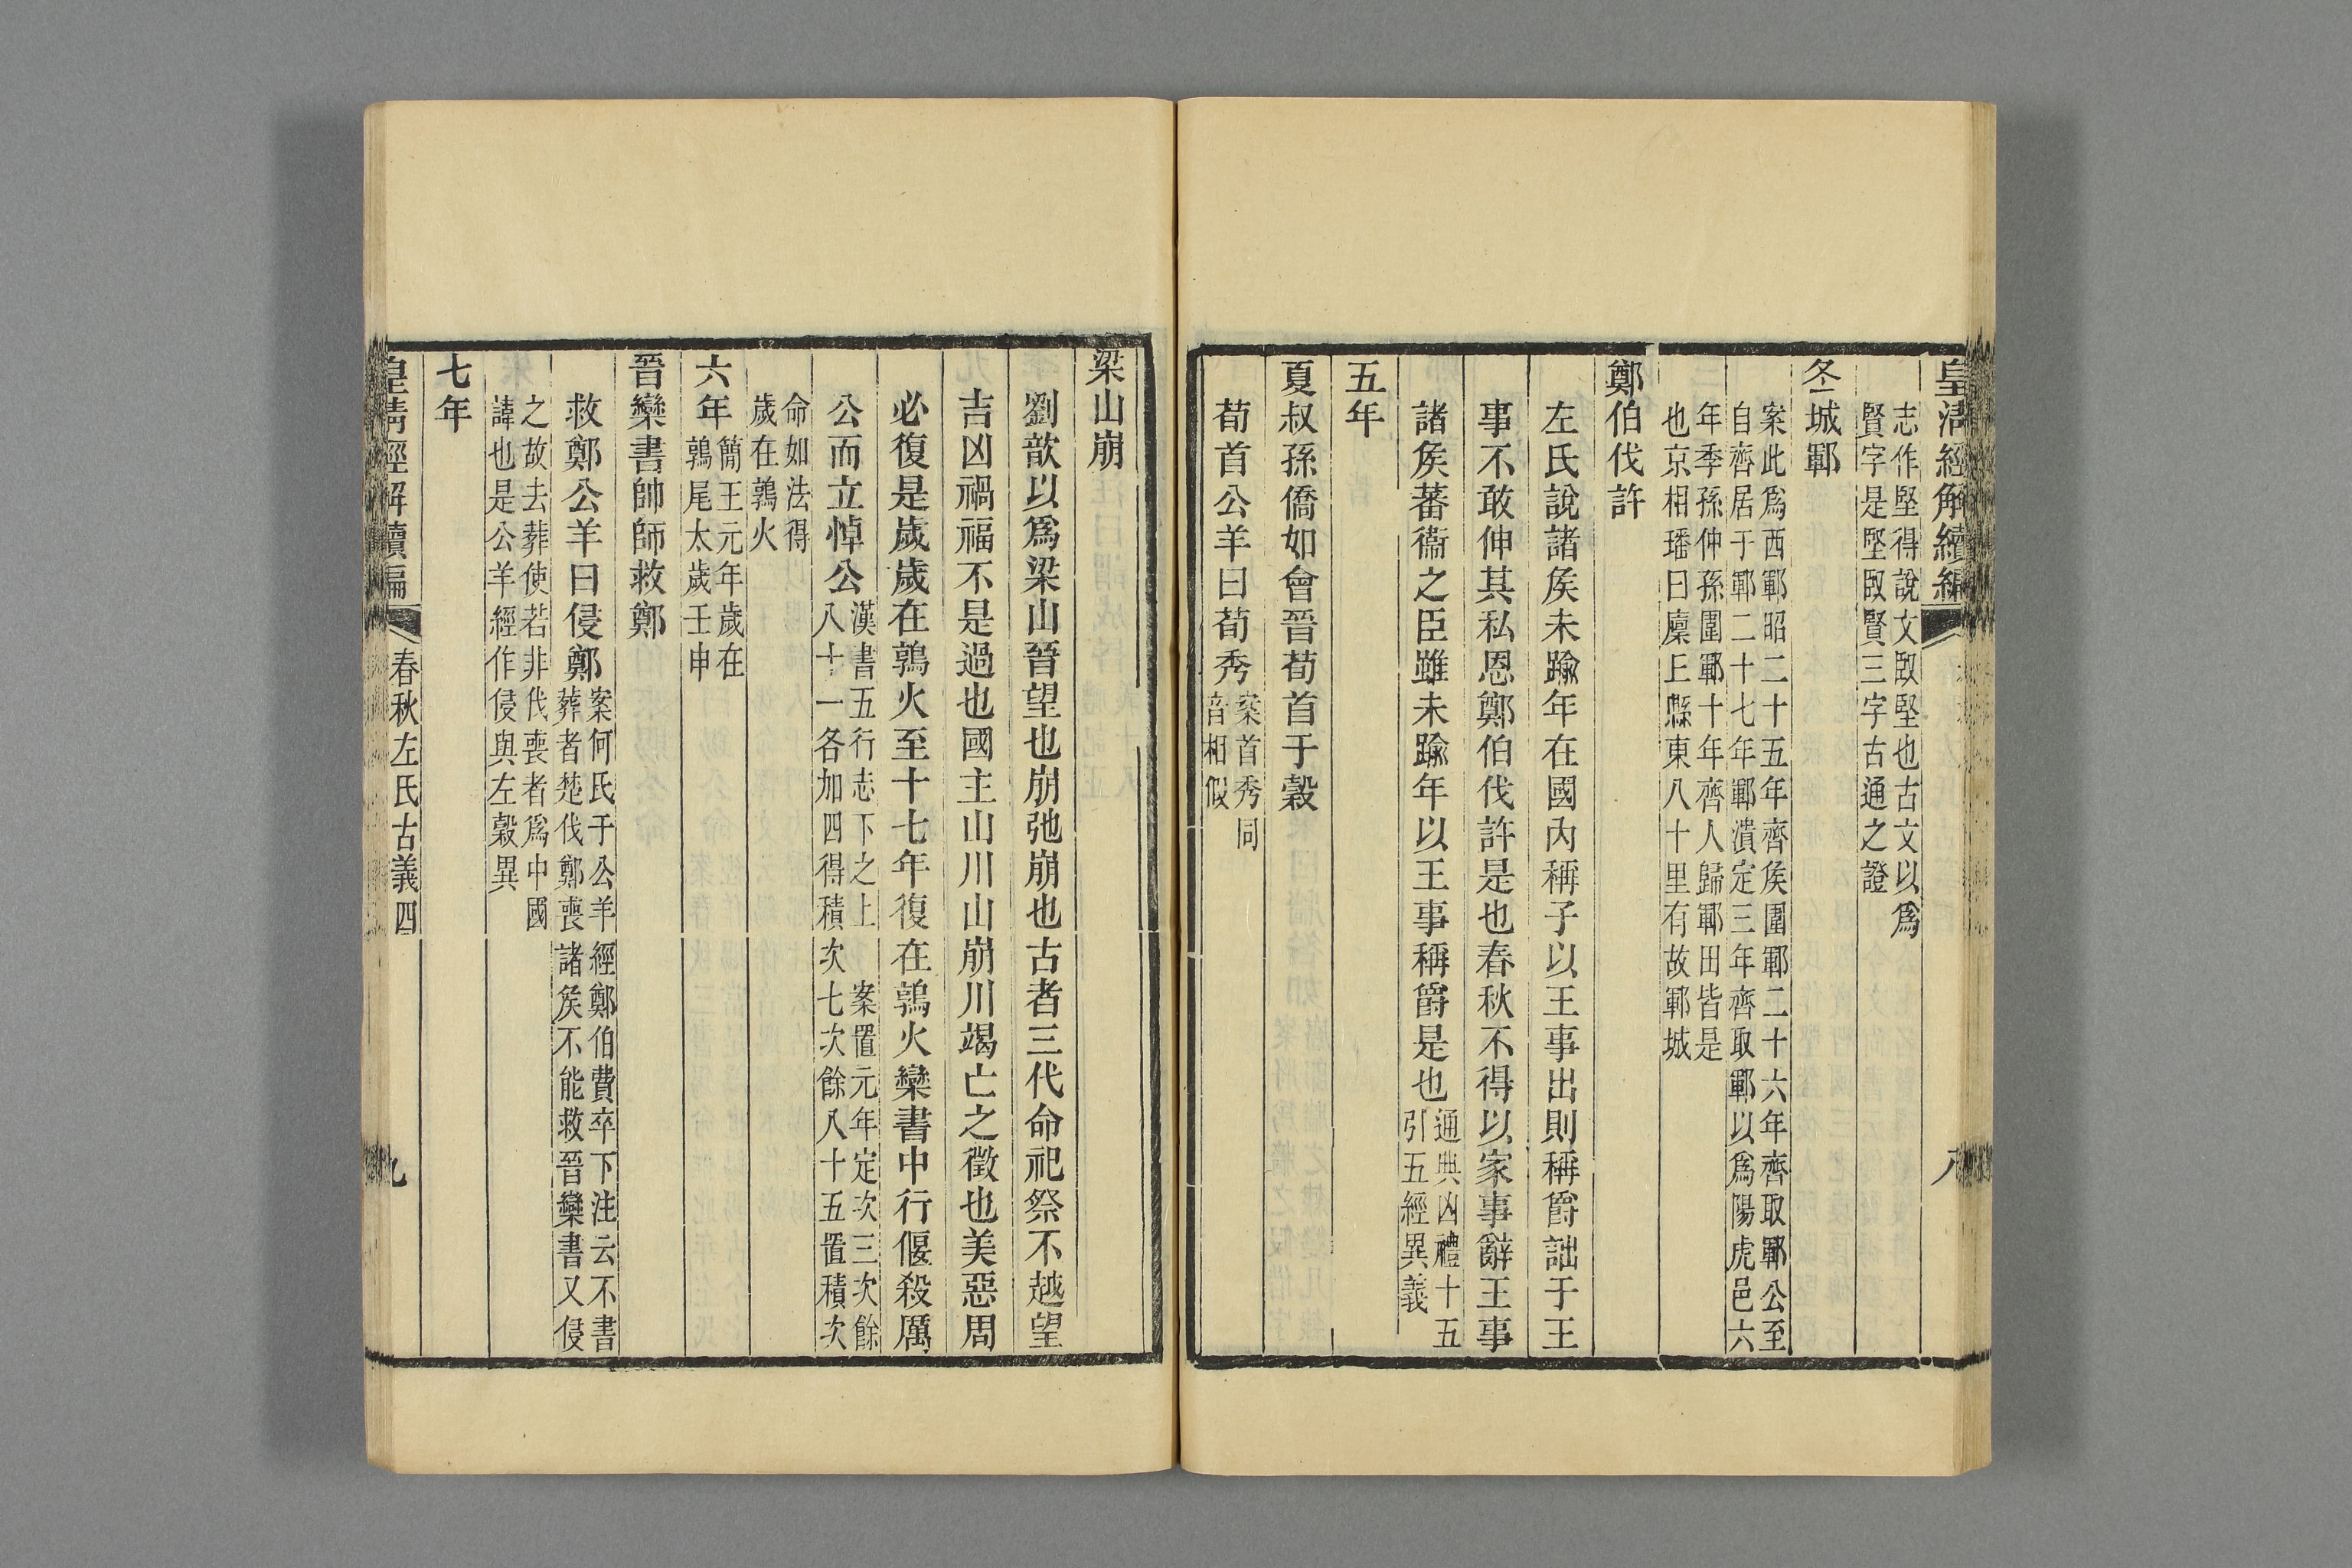 皇清經解續編
八
志作堅得說文臤堅也古文以爲
賢字是堅臤賢三字古通之證
冬城鄆
案此爲西鄆昭二十五年齊矦圍鄆二十六年齊取鄆公至
自齊居于鄆二十七年鄆潰定三年齊取鄆以爲陽虎邑六
年季孫仲孫圍鄆十年齊人歸鄆田皆是
也京相璠曰廩上縣東八十里有故鄆城
鄭伯伐許
左氏說諸矦未踰年在國內稱子以王事出則稱爵詘于王
事不敢伸其私恩鄭伯伐許是也春秋不得以家事辭王事
諸矦蕃衞之臣雖未踰年以王事稱爵是也通典凶禮十五
引五經異義
五年
夏叔孫僑如會晉荀首于穀
荀首公羊曰荀秀案首秀同
音相似
梁山崩
劉歆以爲梁山晉望也崩弛崩也古者三代命祀祭不越望
吉凶禍福不是過也國主山川山崩川竭亡之徵也美惡周
必復是歲歲在鶉火至十七年復在鶉火欒書中行偃殺厲
公而立悼公漢書五行志下之上 案置元年定次三次餘
八十一各加四得積次七次餘八十五置積次
命如法得
歲在鶉火
六年簡王元年歲在
鶉尾太歲壬申
晉欒書帥師救鄭
救鄭公羊曰侵鄭案何氏于公羊經鄭伯費卒下注云不書
葬者楚伐鄭喪諸矦不能救晉欒書又侵
之故去葬使若非伐喪者爲中國
諱也是公羊經作侵與左穀異
七年
皇清經解續編
春秋左氏古義四
九